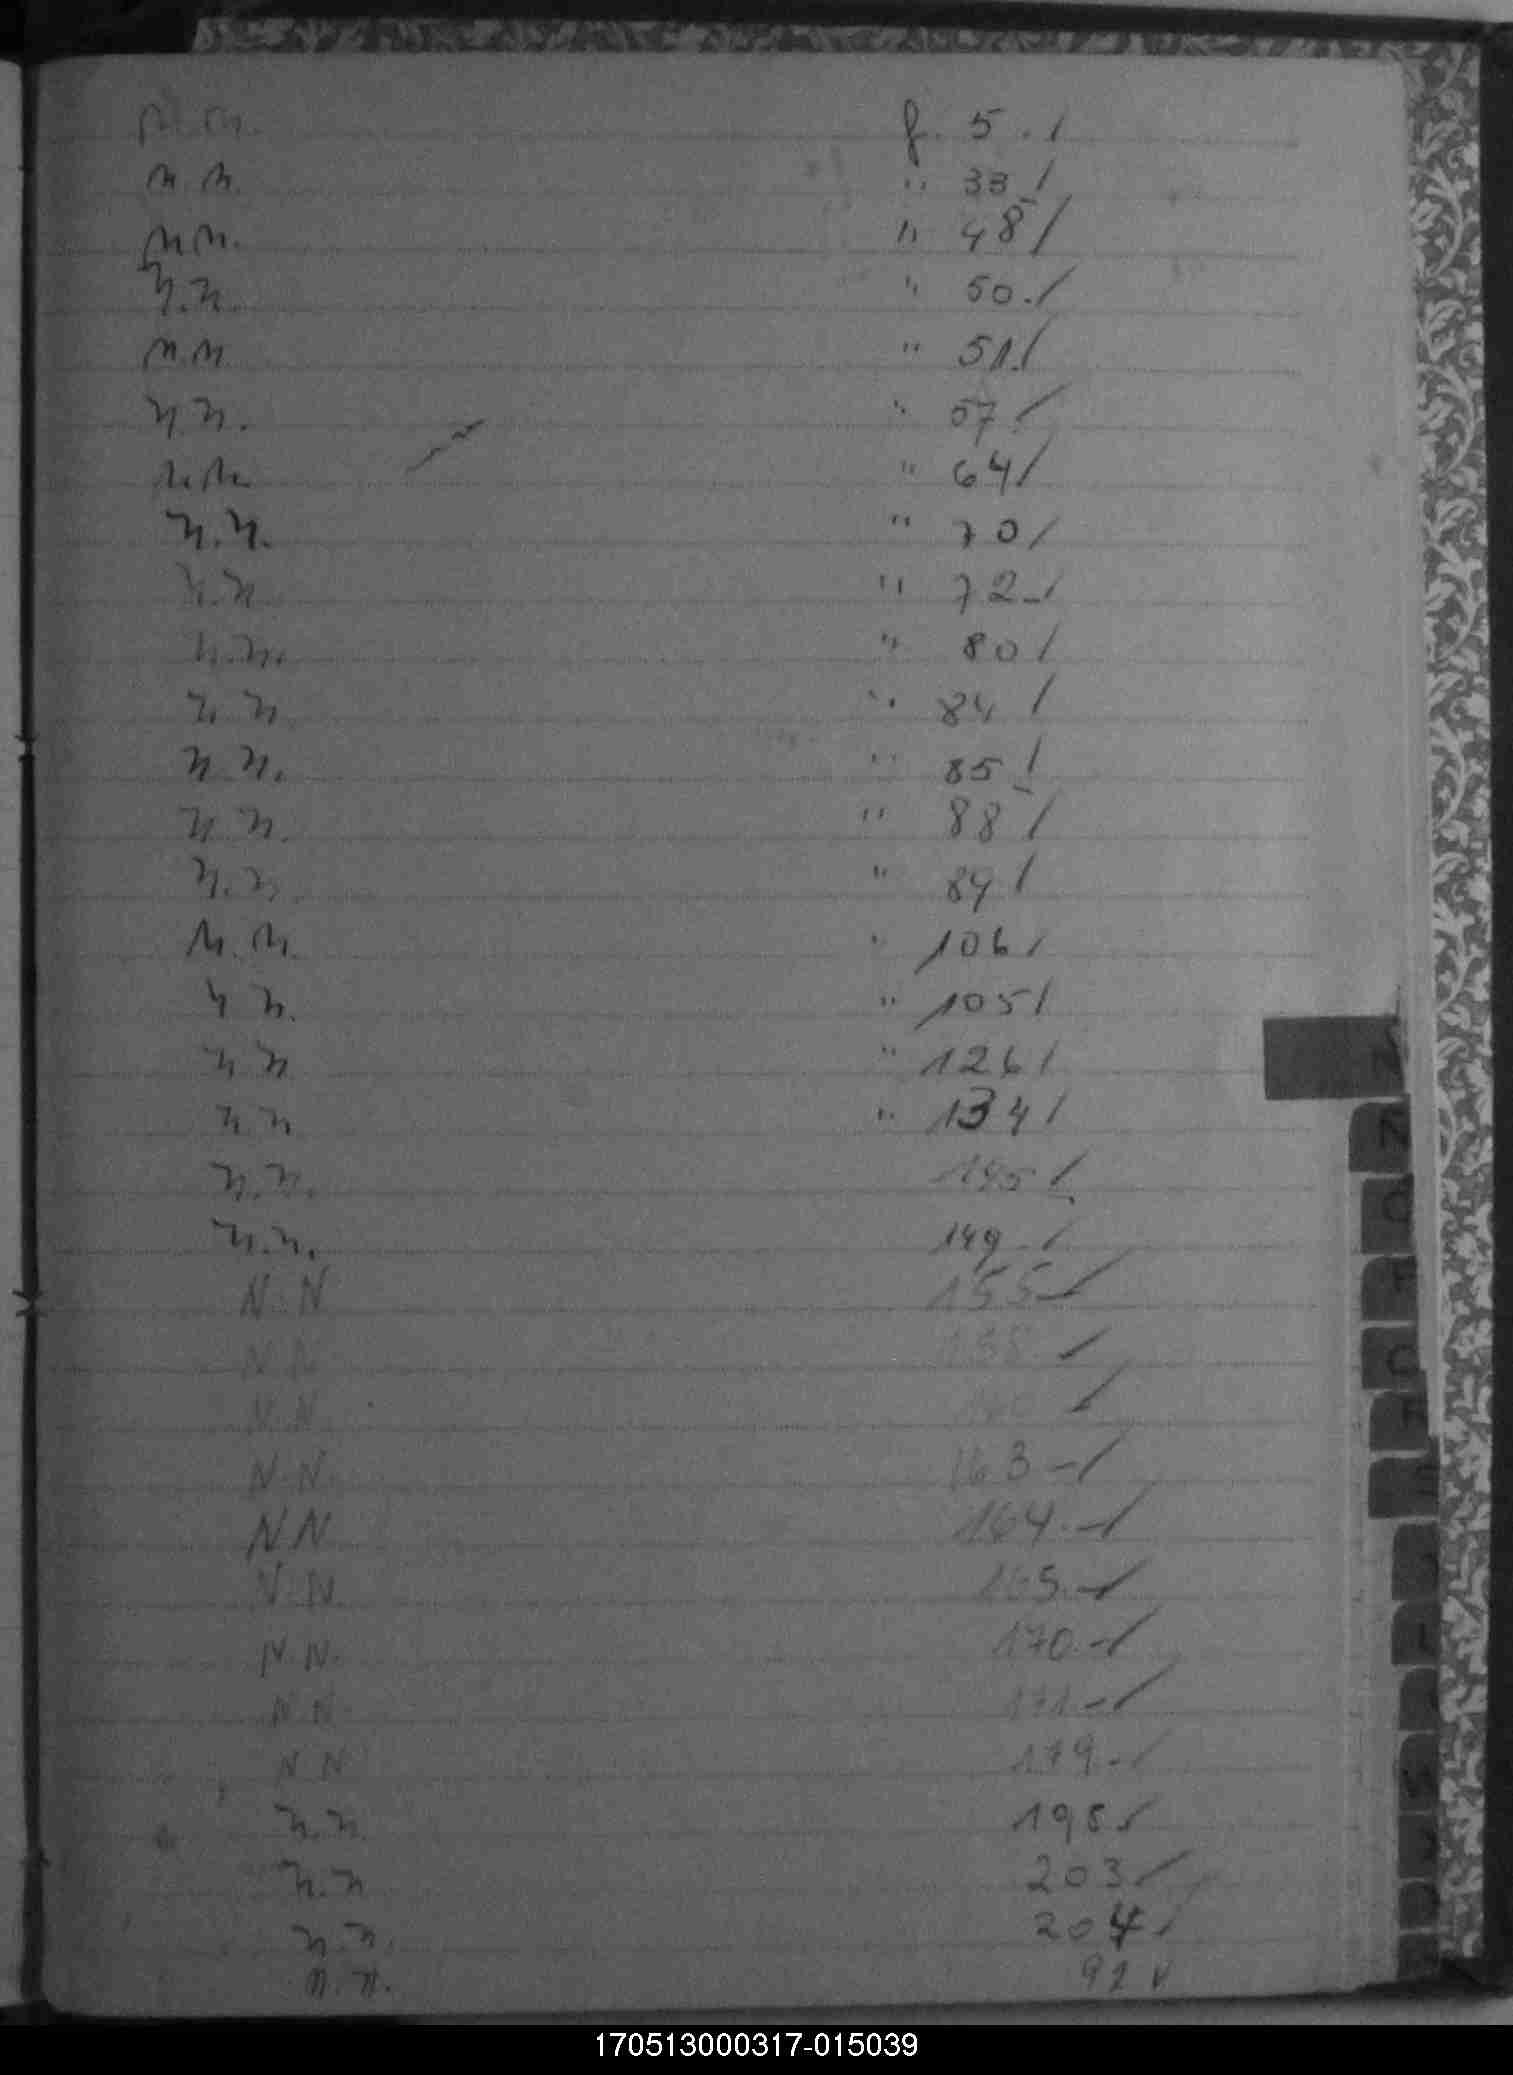 N.N. f. 5. /
N.N. " 33 /
N.N. " 48 /
N.N. " 50. /
N.N. " 51. /
N.N. " 57. /
N.N. " 64 /
N.N. " 70 /
N.N. " 72 - /
N.N. " 80 /
N.N. " 84 /
N.N. " 85 /
N.N. " 88 /
N.N. " 89 /
N.N. " 106 /
N.N. " 105 /
N.N " 126 /
N.N " 134 /
N.N. /
N.N. 149 - /
N.N 155 - /
N.N 158 - /
N.N /
N.N. 163 - /
N N 164. - /
N.N 165. - /
N.N. 170. - /
N N. 171. - /
N N 179. - /
N.N. 198 /
N.N 203 /
N.N. 204 /
N.N. 92 v
N
N
O
170513000317-015039